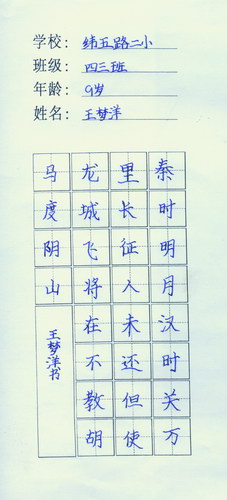 学校：纬五路二小
班级：四三班
年龄：9岁
姓名：王梦洋
秦时明月汉时关万
里长征人未还但使
龙城飞将在不教胡
马度阴山
王梦洋书